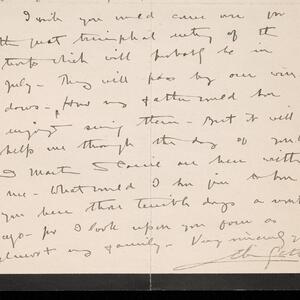 I wish you could come over for
the great triumphal entry of the
troops which will probably be in
July - They will pass by our win
dows - How my father would have
enjoyed seeing them - But it will
help me through the day if you
I Marthe & Carrie are here with
me - What would I have given to have
you here those terrible days a month
ago - for I look upon you as
almost my family - Very sincerely yrs